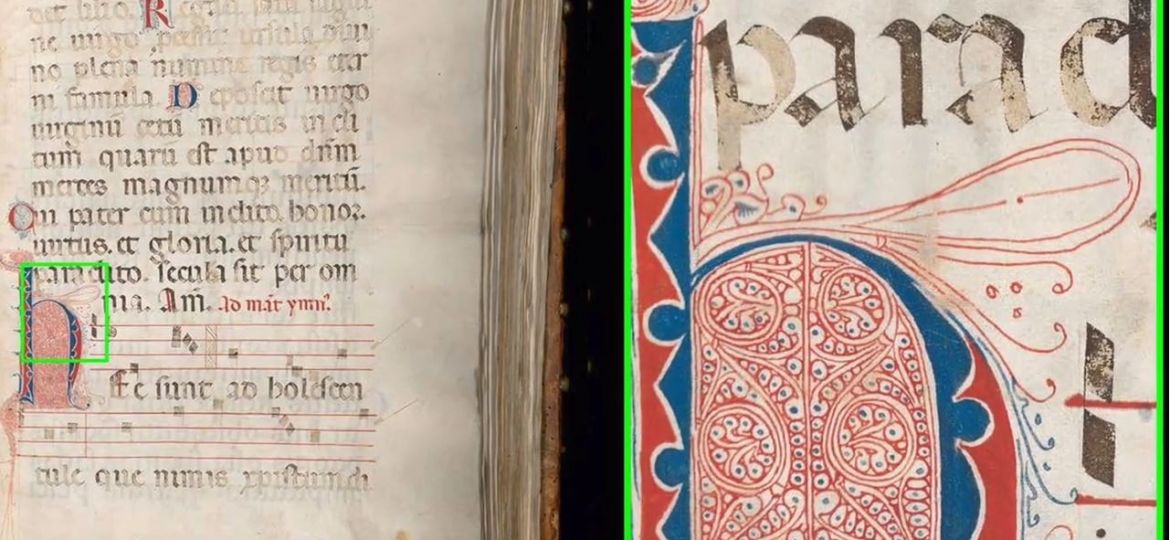 det libro. R
ne uirgo
no plena numine regis eter
ni famula. Deposcit uirgo
uirginū cetū meritis incli
tum quarū est apud dūm
merces magnumq; meritū.
Qui pater cum indito. honor.
uirtus. et gloria. et spiritu
paraclito. secula sit per om
nia. Am̄. Ad mat̄ ymn̄.
Hec sunt ad
tule que nimis
parad